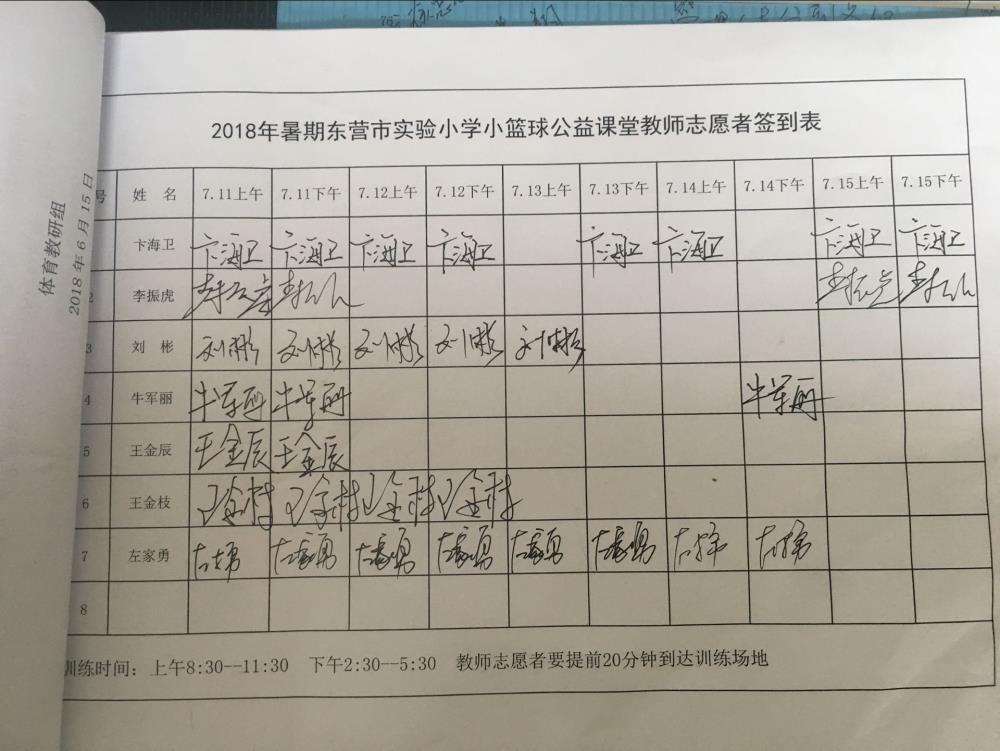 体育教研组
2018年6月15日
2018年暑期东营市实验小学小篮球公益课堂教师志愿者签到表
号 姓 名 7.11上午 7.11下午 7.12上午 7.12下午 7.13上午 7.13下午 7.14上午 7.14下午 7.15上午 7.15下午
卞海卫 卞海卫 卞海卫 卞海卫 卞海卫 卞海卫 卞海卫 卞海卫 卞海卫
2 李振虎 李振虎
3 刘 彬 刘彬 刘彬 刘彬 刘彬 刘彬
4 牛军丽 牛军丽 牛军丽 牛军丽
5 王金辰 王金辰 王金辰
6 王金枝 王金枝 王金枝 王金枝 王金枝
7 左家勇 左家勇 左家勇 左家勇 左家勇 左家勇
8
训练时间：上午8:30--11:30 下午2:30--5:30 教师志愿者要提前20分钟到达训练场地